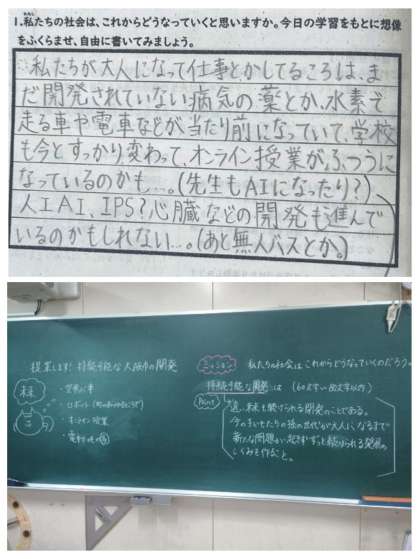 1.私たちの社会は、これからどうなっていくと思いますか。今日の学習をもとに想像
をふくらませ、自由に書いてみましょう。
私たちが大人になって仕事とかしてるころは、ま
だ開発されていない病気の薬とか、水素で
走る車や電車などが当たり前になっていて、学校
も今とすっかり変わって、オンライン授業がふつうに
なっているのかも…。(先生もAIになったり?)
人工AI、IPS?心臓などの開発も進んで
いるのかもしれない…。(あと無人バスとか。)
提案します! 持続可能な大阪市の開発
未来
・空飛ぶ車
・ロボット
・オンライン授業
・電車
ミッション 私たちの社会はこれからどうなっていくのだろう。
持続可能な開発とは
Point
未来も続けられる開発のことである。
世代が大人になるまで
新たな問題が起きず、ずっと続けられる発展の
しくみを作ること。